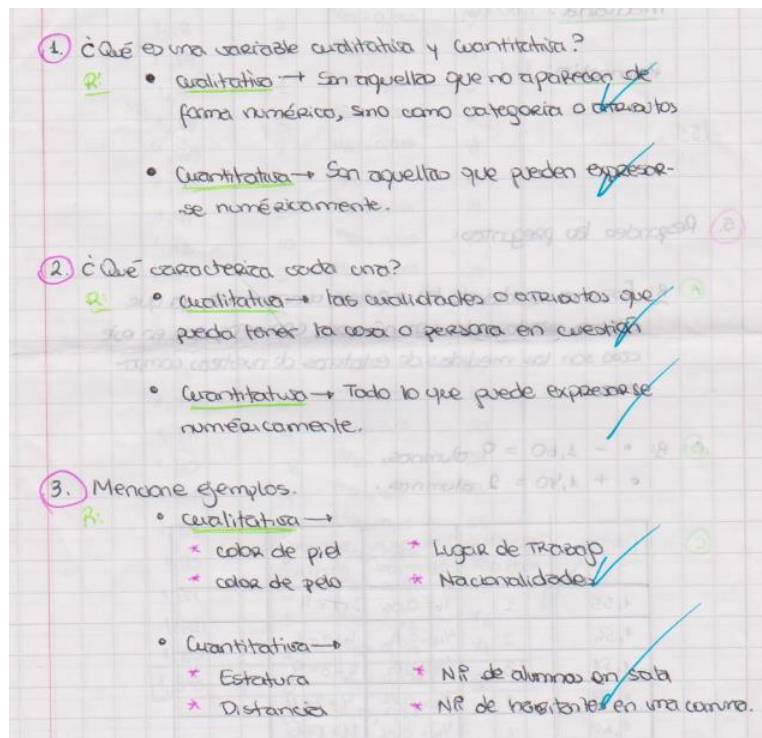 1. ¿Qué es una variable cualitativa y cuantitativa?
R: • cualitativa → Son aquellas que no aparecen de
forma numérico, sino como categoria o atributos
• Cuantitativa → Son aquellas que pueden expresar-
se numéricamente.
2. ¿Qué caracteriza cada una?
R: • cualitativa → las cualidades o atributos que
pueda tener la cosa o persona en cuestión
• Cuantitativa → Todo lo que puede expresarse
numéricamente.
3. Mencione ejemplos.
R: • cualitativa →
* color de piel * Lugar de Trabajo
* color de pelo * Nacionalidades
• Cuantitativa →
* Estatura * Nº de alumnos en sala
* Distancia * Nº de habitantes en una comuna.